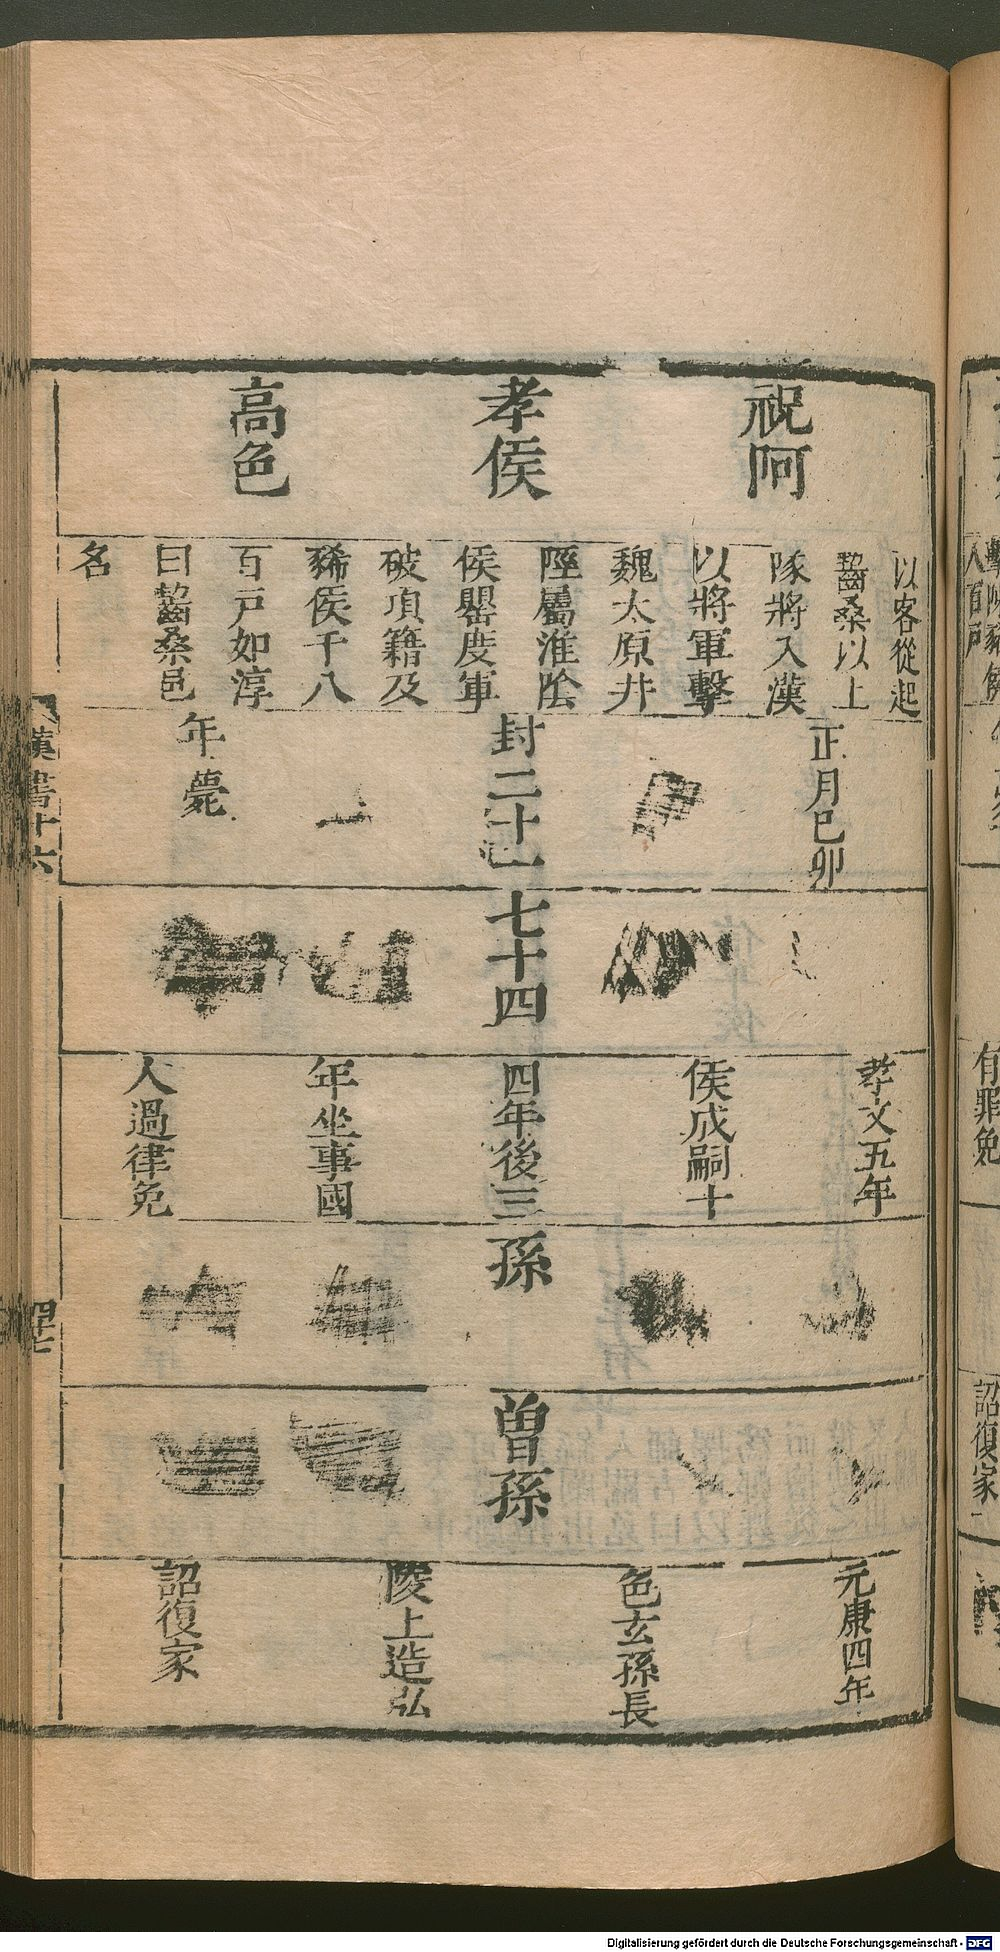 祝阿
孝侯
高色
以客從起
齧桑以上
隊將入漢
以將軍擊
魏太原井
陘屬淮陰
侯罌度軍
破項籍及
豨侯千八
百戸如淳
曰齧桑邑
名
正月巳卯
封二十一
年薨
七十四
孝文五年
侯成嗣十
四年後三
年坐事國
人過律免
孫
曾孫
元康四年
色玄孫長
陵上造弘
詔復家
漢書十六
四十七
有罪免
詔復家
Digitalisierung gefördert durch die Deutsche Forschungsgemeinschaft - DFG